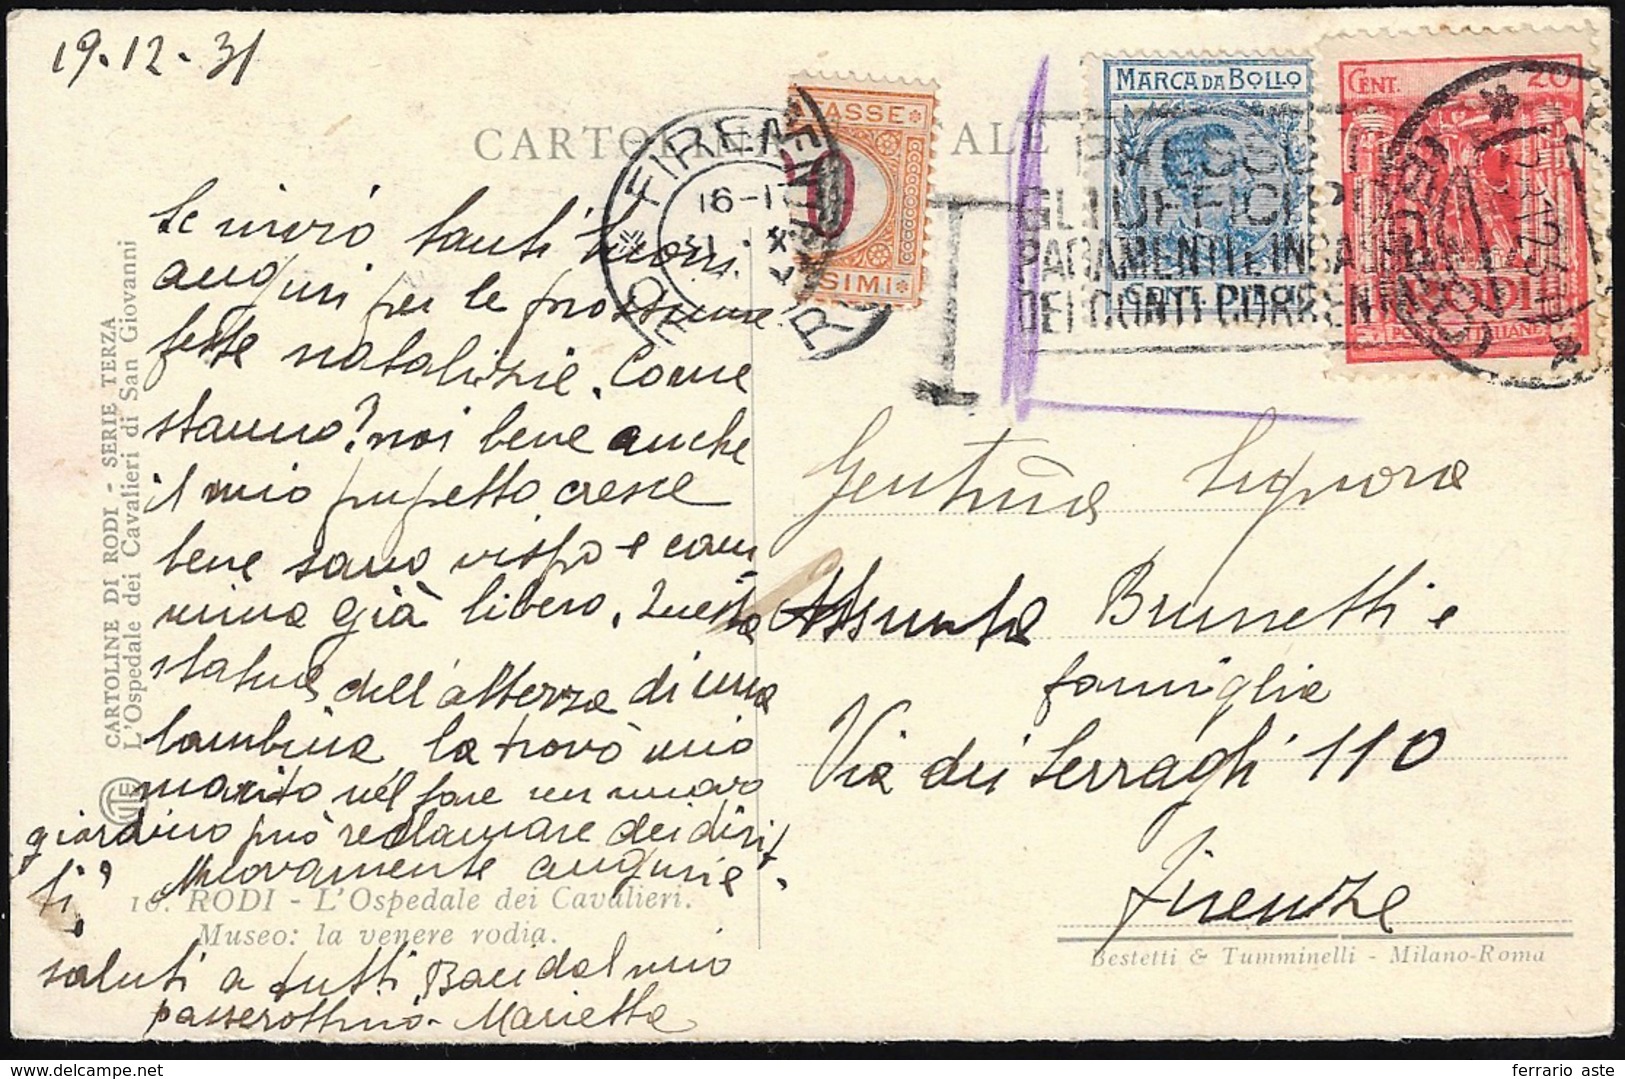 19-12-31
CARTOLINA
ALE
MARCA DA BOLLO
CENT. 20
RODI
ASSE
SIMI
FIRENZE
16-17
T
GLI UFFICI P
PAGAMENTI E INCA
DEI CONTI CORRENTI
Le invio tanti buoni
auguri per le prossime
feste natalizie. Come
stanno? noi bene anche
il mio pupetto cresce
bene sano vispo e cam=
mina già libero. Questa
statua dell'altezza di una
bambina la trovò mio
marito nel fare un nuovo
giardino può reclamare dei dirit
ti! Nuovamente augurie.
saluti a tutti Baci dal mio
passerottino. Marietta
Gentil.ma Signora
Assunta Brunetti e
famiglia
Via dei Serragli 110
Firenze
CARTOLINE DI RODI - SERIE TERZA
L'Ospedale dei Cavalieri di San Giovanni
10. RODI - L'Ospedale dei Cavalieri.
Museo: la venere rodia.
Bestetti & Tumminelli - Milano-Roma
ferrario aste